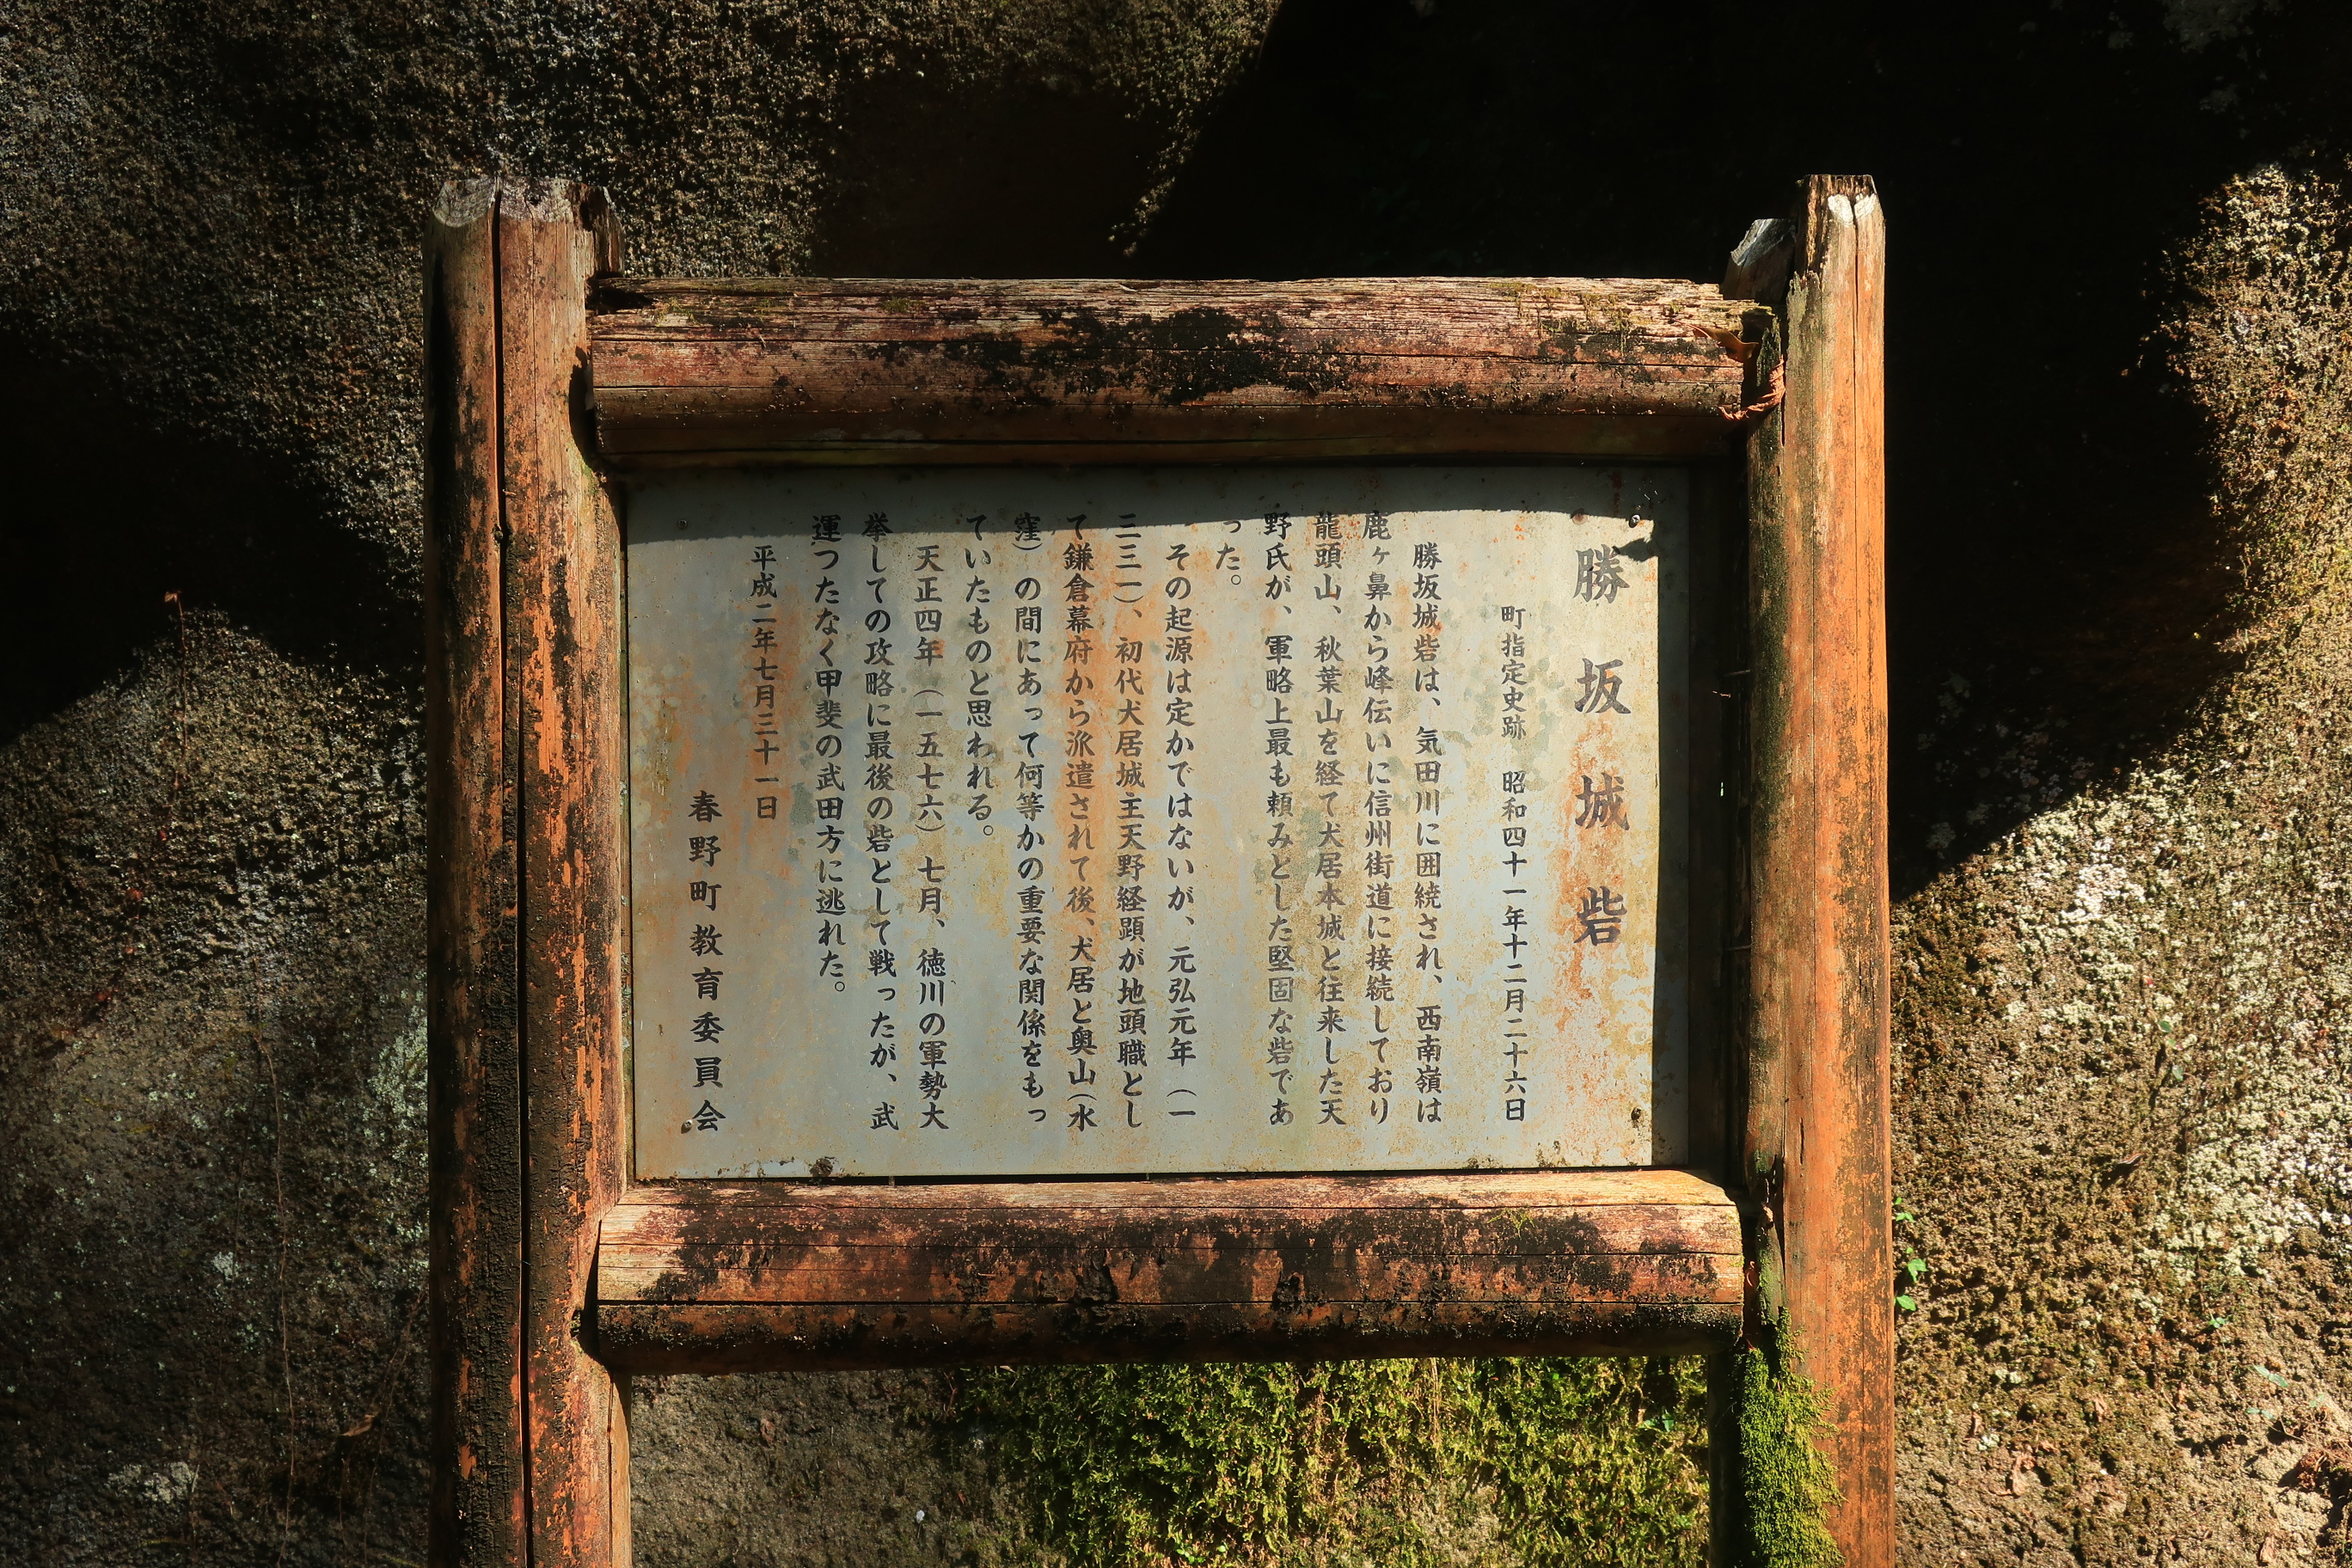 勝坂城砦
町指定史跡　昭和四十一年十二月二十六日
勝坂城砦は、気田川に囲繞され、西南嶺は
鹿ヶ鼻から峰伝いに信州街道に接続しており
龍頭山、秋葉山を経て犬居本城と往来した天
野氏が、軍略上最も頼みとした堅固な砦であ
った。
その起源は定かではないが、元弘元年（一
三三一）、初代犬居城主天野経顕が地頭職とし
て鎌倉幕府から派遣されて後、犬居と奥山（水
窪）の間にあって何等かの重要な関係をもっ
ていたものと思われる。
天正四年（一五七六）七月、徳川の軍勢大
挙しての攻略に最後の砦として戦ったが、武
運つたなく甲斐の武田方に逃れた。
平成二年七月三十一日
春野町教育委員会